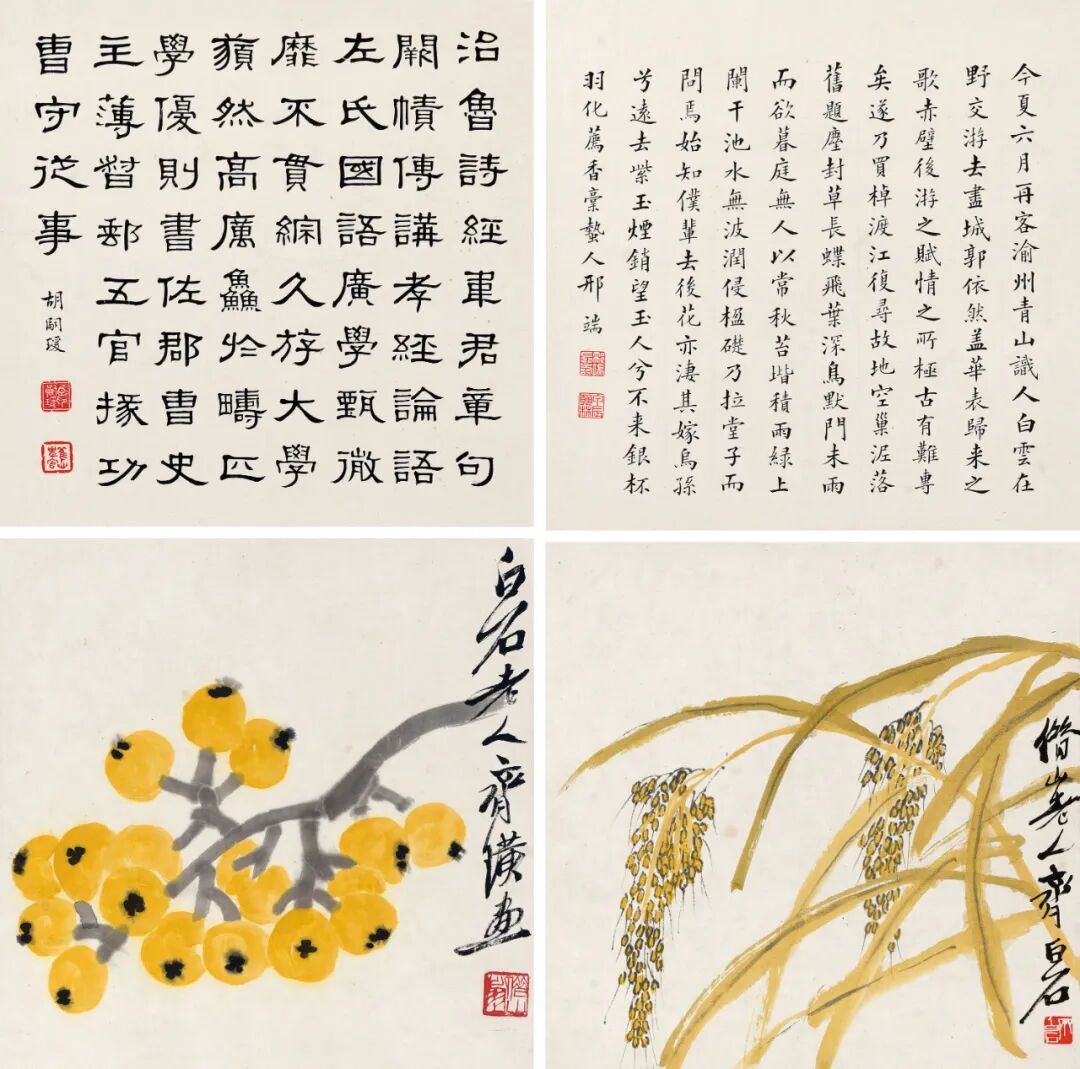 治魯詩經韋君章句
闕幘傳講孝經論語
左氏國語廣學甄微
靡不貫綜久斿大學
藐然高厲鱻於疇匹
學優則書佐郡曹史
主薄督郵五官掾功
曹守從事
胡嗣瑗
今夏六月再客渝州青山識人白雲在
野交游去盡城郭依然盖華表歸来之
歌赤壁後游之賦情之所極古有難專
矣遂乃買棹渡江復尋故地空巢泥落
舊題塵封草長蝶飛葉深鳥默門未雨
而欲暮庭無人以常秋苔堦積雨緑上
闌干池水無波潤侵楹礎乃拉堂子而
問焉始知僕輩去後花亦淒其嫁烏孫
兮遠去紫玉煙銷望玉人兮不来銀杯
羽化薦香稾蟄人邢端
白石老人齊璜畫
借山老人齊白石